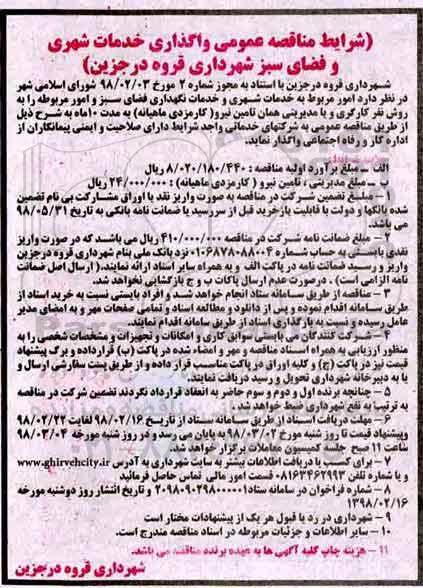 (شرایط مناقصه عمومی واگذاری خدمات شهری
و فضای سبز شهرداری قروه درجزین)
شهرداری قروه درجزین با استناد به مجوز شماره ۲ مورخ ۹۸/۰۲/۰۳ شورای اسلامی شهر
در نظر دارد امور مربوط به خدمات شهری و خدمات نگهداری فضای سبز و امور مربوطه را به
روش نفر کارگری و یا مدیریتی همان تامین نیرو( کارمزدی ماهیانه) به مدت ۱۰ماه به شرح ذیل
از طریق مناقصه عمومی به شرکتهای خدماتی واجد شرایط دارای صلاحیت و ایمنی پیمانکاران از
اداره کار و رفاه اجتماعی واگذار نماید.
الف ــ مبلغ برآورد اولیه مناقصه : ۸/۰۲۰/۱۸۰/۴۴۰ ریال
ب ــ مبلغ مدیریتی ، تامین نیرو ( کارمزدی ماهیانه) : ۲۴/۰۰۰/۰۰۰ ریال
۱ – مبلغ تضمین شرکت در مناقصه به صورت واریز نقد یا اوراق مشارکت بی نام تضمین
شده بانکها و دولت با قابلیت بازخرید قبل از سررسید یا ضمانت نامه بانکی به تاریخ ۹۸/۰۵/۳۱
می باشد.
۲ – مبلغ ضمانت نامه شرکت در مناقصه ۴۱۰/۰۰۰/۰۰۰ ریال می باشد که در صورت واریز
نقدی بایستی به حساب شماره ۰۱۰۶۸۷۸۰۸۸۰۰۴ نزد بانک ملی بنام شهرداری قروه درجزین
واریز و رسید ضمانت نامه در پاکت الف و به همراه سایر اسناد ارائه نمایند.( ارسال اصل ضمانت
نامه الزامی است) . درصورت عدم ارسال پاکات ب و ج بازگشایی نخواهد شد.
۳ – مناقصه از طریق سامانه ستاد انجام خواهد شد و افراد بایستی نسبت به خرید اسناد از
طریق سامانه اقدام نموده و پس از دانلود و مطالعه اسناد و تمامی صفحات مهر و به امضای مدیر
عامل رسیده و نسبت به بارگذاری اسناد از طریق سامانه اقدام نمایند.
۴ – شرکت کنندگان می بایستی سوابق کاری و امکانات و تجهیزات و مشخصات شخصی را به
منظور ارزیابی به همراه اسناد مناقصه و مهر و امضاء شده در پاکت (ب) قرارداده و برگ پیشنهاد
قیمت نیز در پاکت (ج) و کلیه اوراق در پاکت مناسب قرار داده و از طریق پست سفارشی ارسال و
یا به دبیرخانه شهرداری تحویل و رسید دریافت نمایند.
۵ – چنانچه برنده اول و دوم و سوم حاضر به انعقاد قرارداد نگردند تضمین شرکت در مناقصه
به ترتیب به نفع شهرداری ضبط خواهد شد.
۶ – مهلت دریافت اسناد از طریق سامانه ستاد از تاریخ ۹۸/۰۲/۱۶ لغایت ۹۸/۰۲/۲۲
وپیشنهاد قیمت تا روز شنبه مورخ ۹۸/۰۳/۰۲ به پایان می رسد و در روز شنبه مورخه ۹۸/۰۳/۰۴
ساعت ۱۱ صبح جلسه کمیسیون معاملات برگزار خواهد شد.
۷ – برای کسب یا دریافت اطلاعات بیشتر به سایت شهرداری به آدرس www.ghirvehcity.ir
و یا شماره تلفن ۰۸۱۶۳۴۶۲۹۹۳ قسمت امور مالی تماس حاصل فرمائید
۸ – شماره فراخوان در سامانه ستاد و تاریخ انتشار روز دوشنبه مورخه
۱۳۹۸/۰۲/۱۶
۹ – شهرداری در رد یا قبول هر یک از پیشنهادات مختار است
۱۰ – سایر اطلاعات و جزئیات مربوطه در اسناد مناقصه مندرج است.
۱۱ – هزینه چاپ کلیه آگهی ها به عهده برنده مناقصه می باشد.
شهرداری قروه درجزین